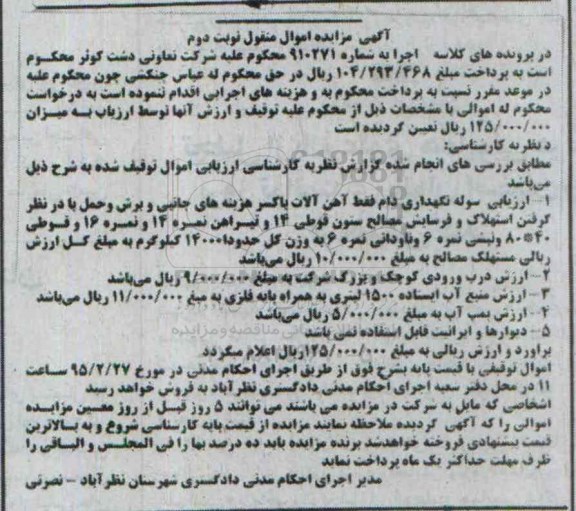 آگهی مزایده اموال منقول نوبت دوم
در پرونده های کلاسه اجرا به شماره ۹۱۰۲۷۱ محکوم علیه شرکت تعاونی دشت کوثر محکوم
است به پرداخت مبلغ ۱۰۴/۲۹۳/۴۶۸ ریال در حق محکوم له عباس جنکشی چون محکوم علیه
در موعد مقرر نسبت به پرداخت محکوم به و هزینه های اجرایی اقدام ننموده است به درخواست
محکوم له اموالی با مشخصات ذیل از محکوم علیه توقیف و ارزش آنها توسط ارزیاب به میزان
۱۲۵/۰۰۰/۰۰۰ ریال تعیین گردیده است
د نظر به کارشناسی:
مطابق بررسی های انجام شده گزارش نظریه کارشناسی ارزیابی اموال توقیف شده به شرح ذیل
می‌باشد
۱- ارزیابی سوله نگهداری دام فقط آهن آلات باکسر هزینه های جانبی و برش وحمل با در نظر
گرفتن استهلاک و فرسایش مصالح ستون قوطی ۱۴ و تیراهن نمره ۱۴ و نمره ۱۶ و قوطی
۴۰*۸۰ ونبشی نمره ۶ وناودانی نمره ۶ به وزن کل حدودا ۱۴۰۰۰ کیلوگرم به مبلغ کل ارزش
ریالی مستهلک مصالح به مبلغ ۱۰/۰۰۰/۰۰۰ ریال می‌باشد
۲- ارزش درب ورودی کوچک و بزرگ شرکت به مبلغ ۹/۰۰۰/۰۰۰ ریال می‌باشد
۳- ارزش منبع آب ایستاده ۱۵۰۰ لیتری به همراه پایه فلزی به مبلغ ۱۱/۰۰۰/۰۰۰ ریال می‌باشد
۴- ارزش پمپ آب به مبلغ ۵/۰۰۰/۰۰۰ ریال می‌باشد
۵- دیوارها و ایرانیت قابل استفاده نمی باشد
براورد و ارزش ریالی به مبلغ ۱۲۵/۰۰۰/۰۰۰ریال اعلام میگردد
اموال توقیفی با قیمت پایه بشرح فوق از طریق اجرای احکام مدنی در مورخ ۹۵/۲/۲۷ ساعت
۱۱ در محل دفتر شعبه اجرای احکام مدنی دادگستری نظرآباد به فروش خواهد رسید
اشخاصی که مایل به شرکت در مزایده می باشند می توانند ۵ روز قبل از روز معین مزایده
اموالی را که آگهی گردیده ملاحظه نمایند مزایده از قیمت پایه کارشناسی شروع و به بالاترین
قیمت پیشنهادی فروخته خواهدشد برنده مزایده باید ده درصد بها را فی المجلس و الباقی را
ظرف مهلت حداکثر یک ماه پرداخت نماید
مدیر اجرای احکام مدنی دادگستری شهرستان نظرآباد - نصرتی